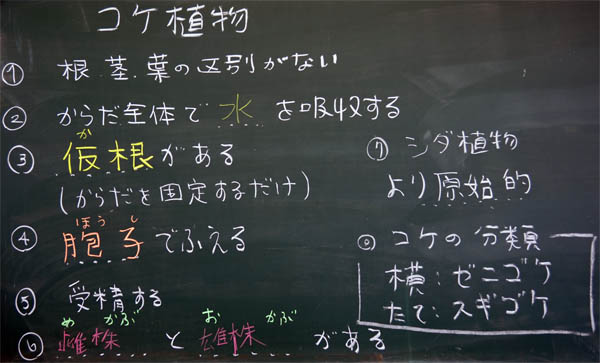 コケ植物
① 根.茎.葉の区別がない
② からだ全体で水を吸収する
か
③ 仮根がある
(からだを固定するだけ)
ほうし
④ 胞子でふえる
⑤ 受精する
めかぶ おかぶ
⑥ 雌株と雄株がある
⑦ シダ植物
より原始的
⑧ コケの分類
横:ゼニゴケ
たて:スギゴケ